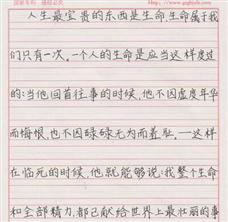 人生最宝贵的东西是生命生命属于我
们只有一次。一个人的生命是应当这样度过
的:当他回首往事的时候,他不因虚度年华
而悔恨,也不因碌碌无为而羞耻。一这样
在临死的时候,他就能够说:我整个生命
和全部精力,都已献给世界上最壮丽的事